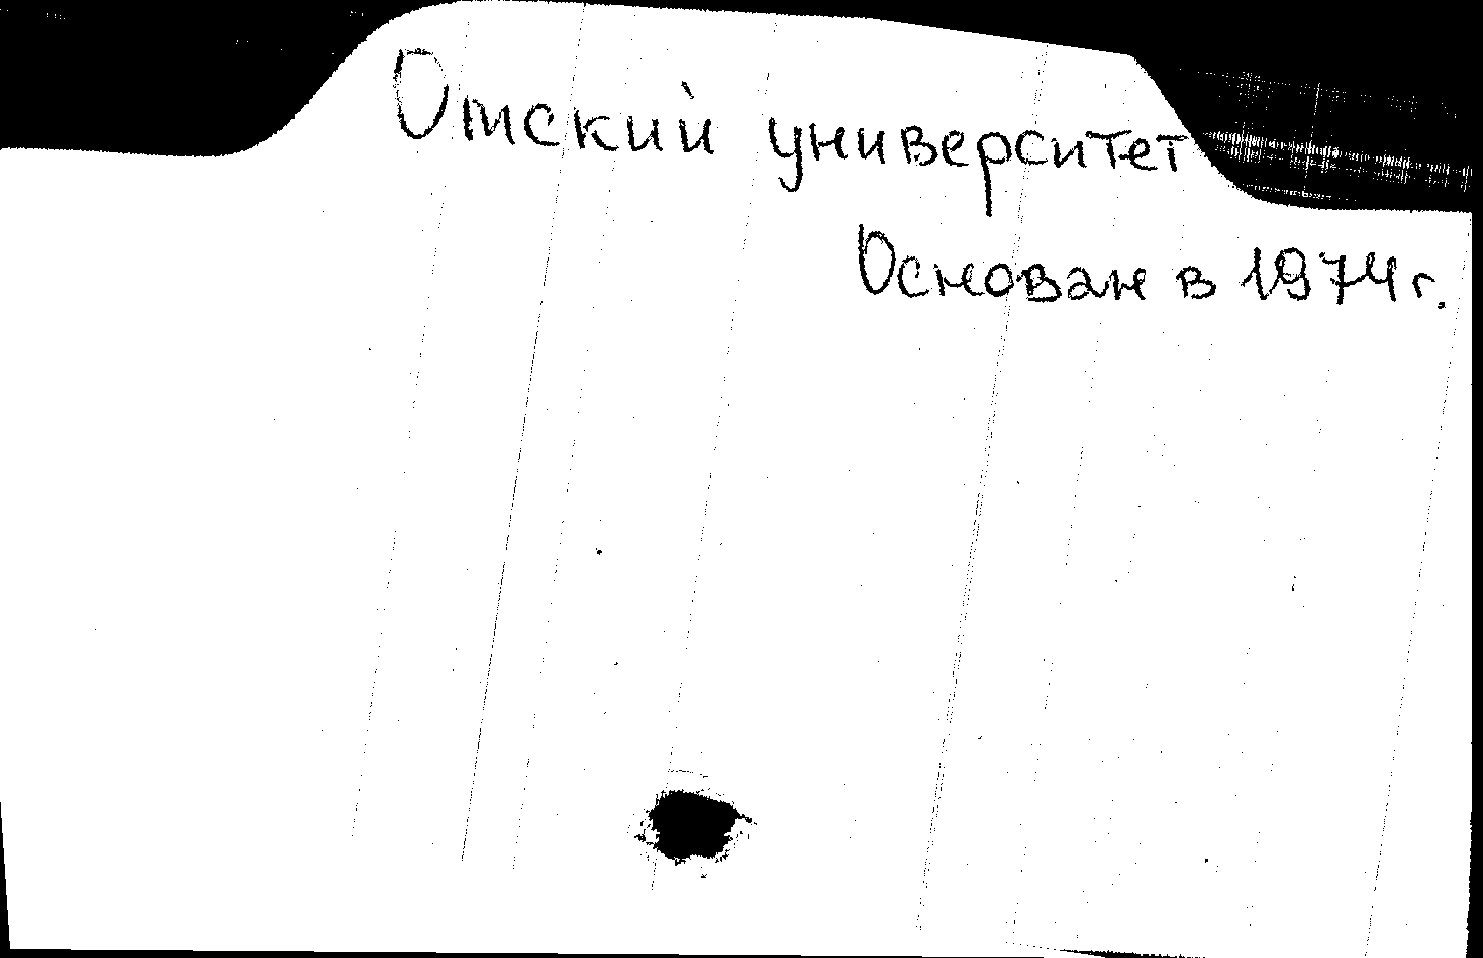 Омский университет
Основан в 1974 г.